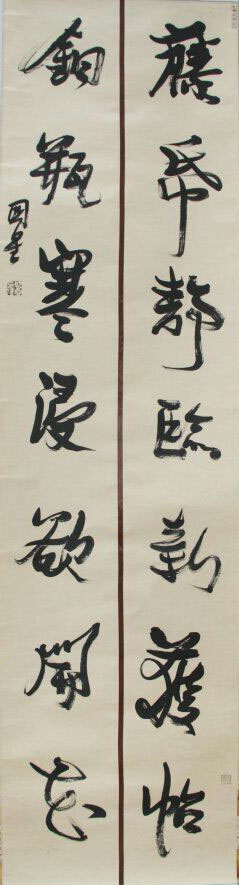 藤帋靜臨新獲帖
銅瓶寒浸欲開花